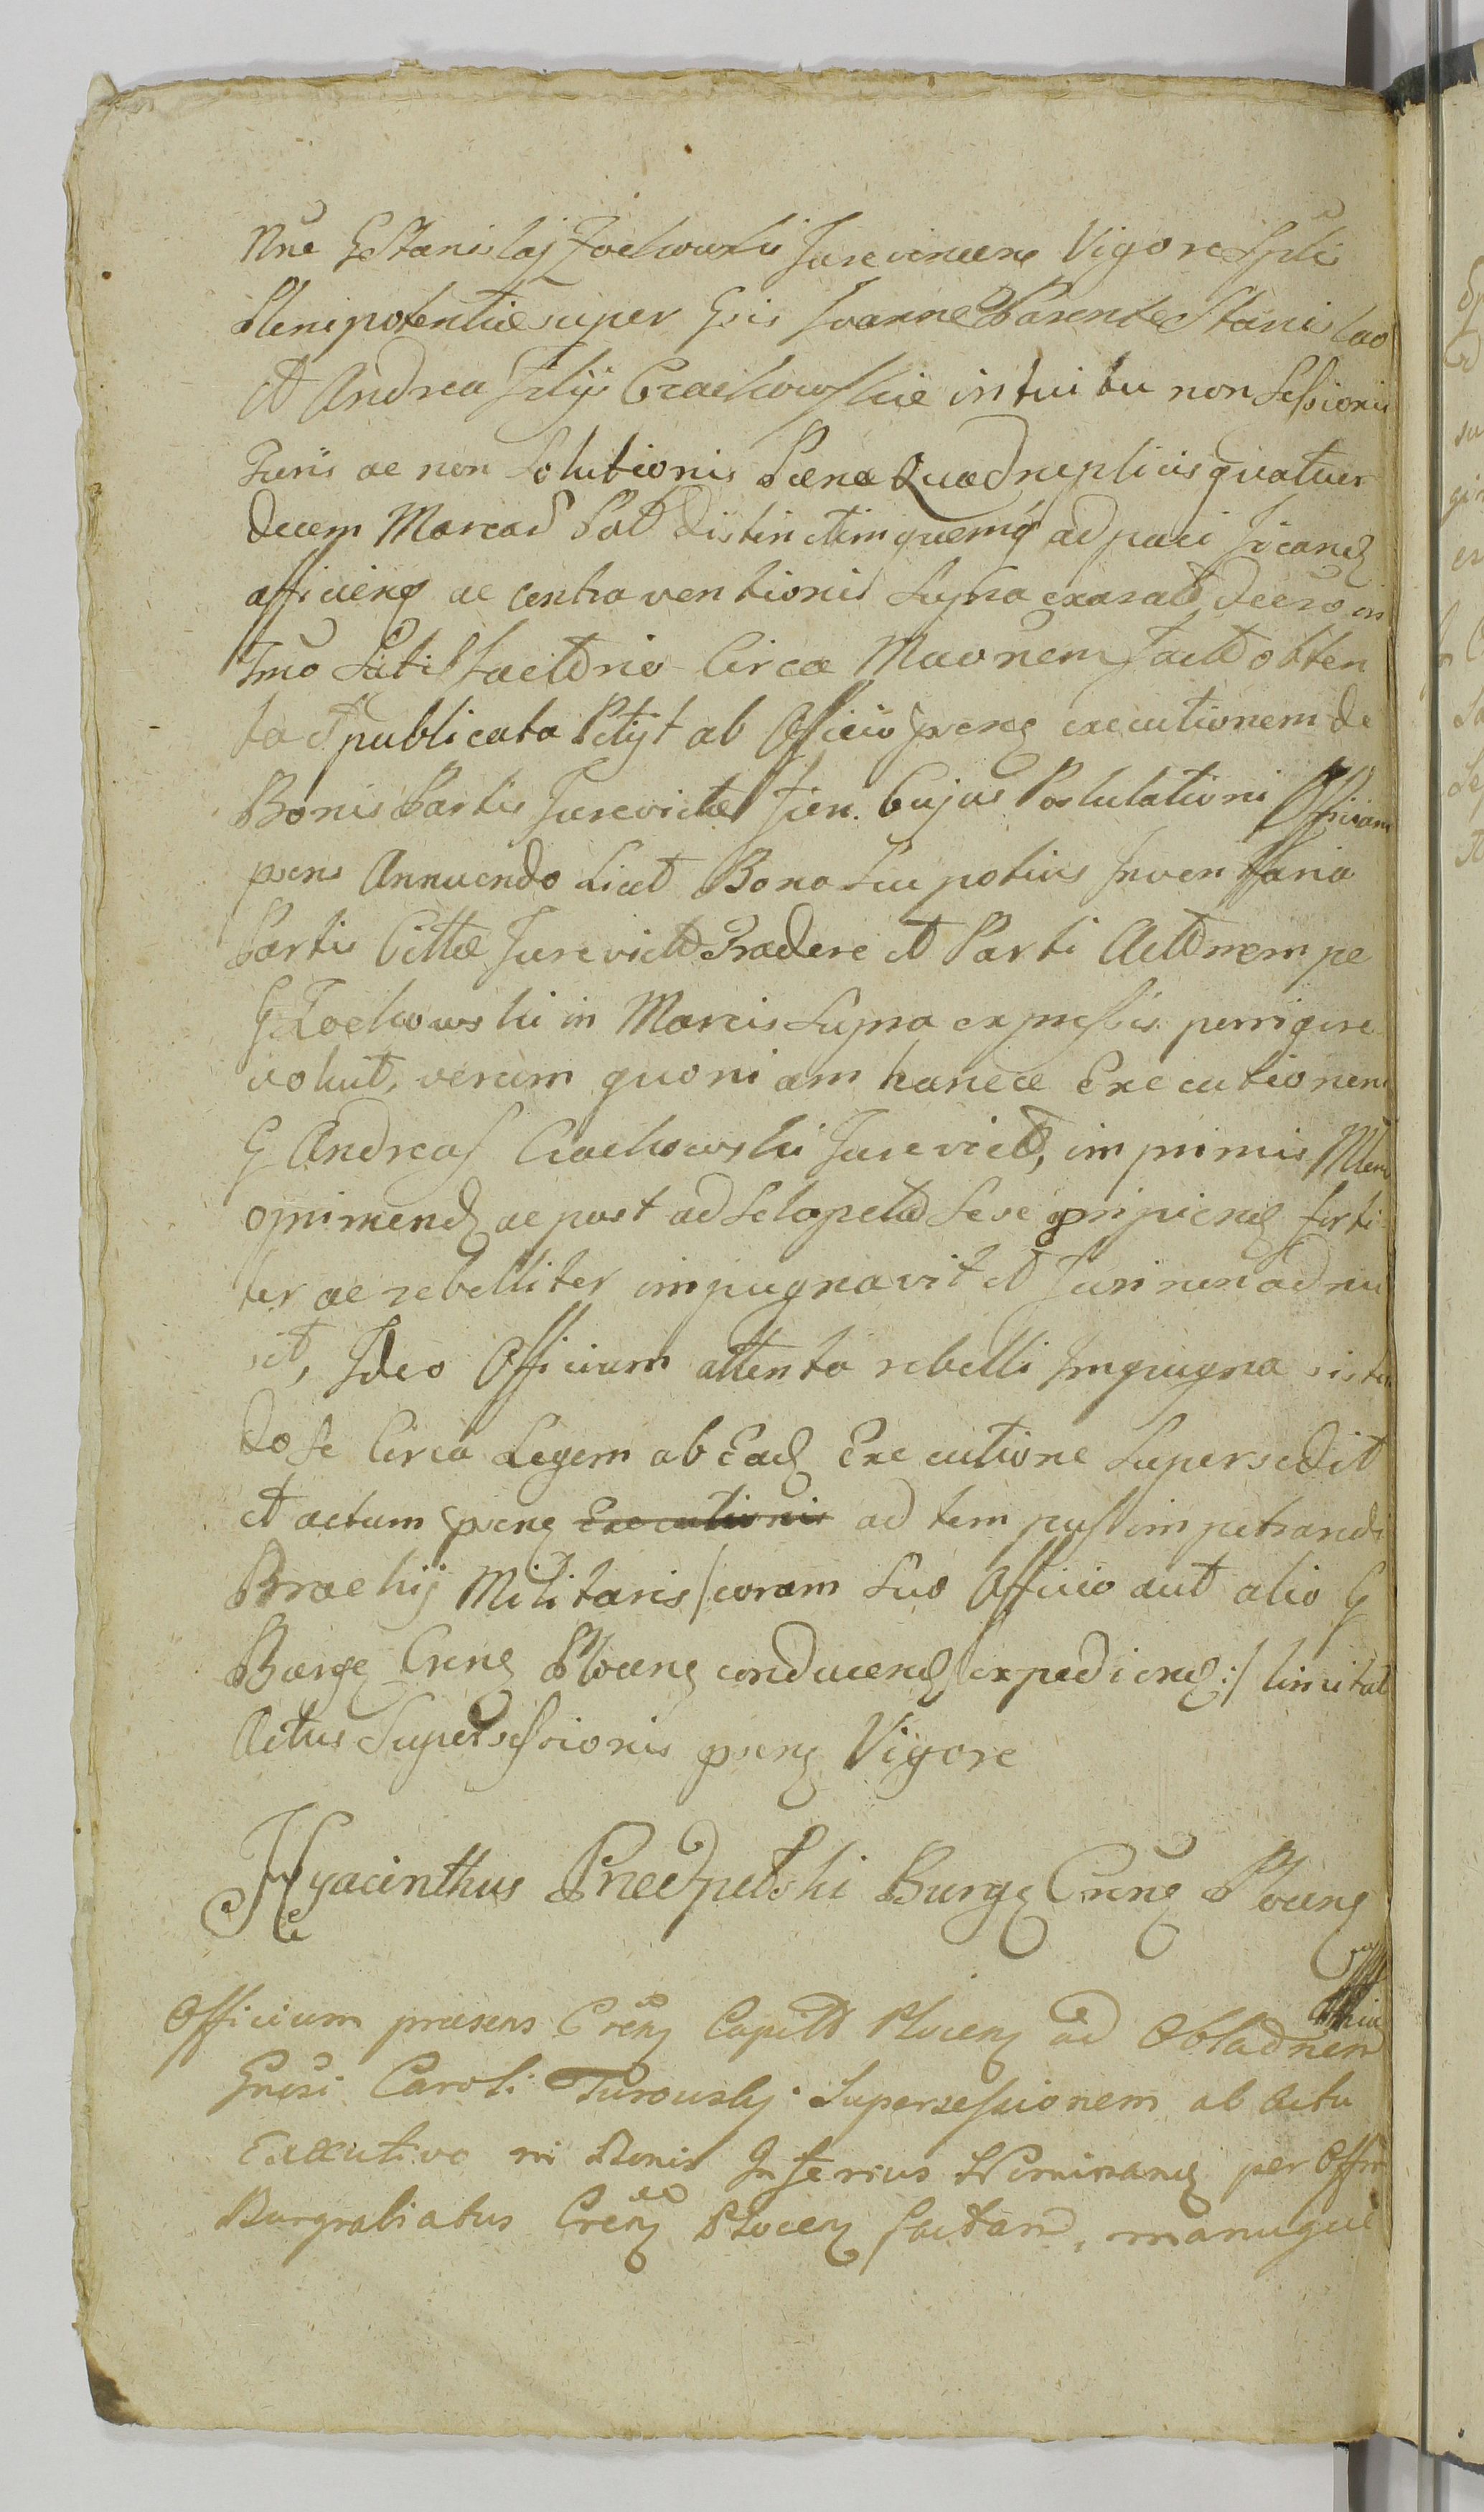 Nne G Stanislaj Zochowski Jurevincens Vigore Splis
Plenipotentiæ super Gsis Joanne Parente Stanislao
et Andrea Filijs Czachowskie intuitu non Sessionis
Juris ac non Solutionis Pæna Quadruplicis quatuor
decem Marcar Pol distinctim quemq ad paei
afficiens ac contraventionis Supra exarat decro in
Tmo Satisfactorio Circa Maonem fact obten
ta et publicata Petijt ab Officio psenz executionem de
Bonis Partis Jurevictæ Fieri. Cujus Postulationi Officium
psens Annuendo Licet Bona Seu potius Inven
Partis Cittæ Jurevict Tradere et Parti Act nempe
G Zochowski in Marcis Supra expressis porrigere
voluit, verum quoniam hancce Executionem
G Andreas Czachowski Jurevict, imprimis
opimend ac post ad Sclopet Sese arripiend forti
ter ac rebelliter impugnavit et Juri non admi
sit, Ideo Officium attenta rebelli Impugna
do se Circa Legem ab Ead Executione Supersedit
et actum psens Executionis ad tempus impetrandi
Brachij Militaris /coram Suo Officio aut alio G
Burge Crenz Plocenz conducend expediend:/ limitat
Actus Supersessionis psenz Vigore
Hyacinthus Przedpełski Burgz Crenz Plocenz
Officium præsens Crenz Capitt Plocenz ad Obladnem
Gnosi Caroli Turowskj Supersessionem ab Actu
Executivo in Bonis Inferius Nominand per Offm
Burgrabiatus Crenz Plocenz factam, manuque